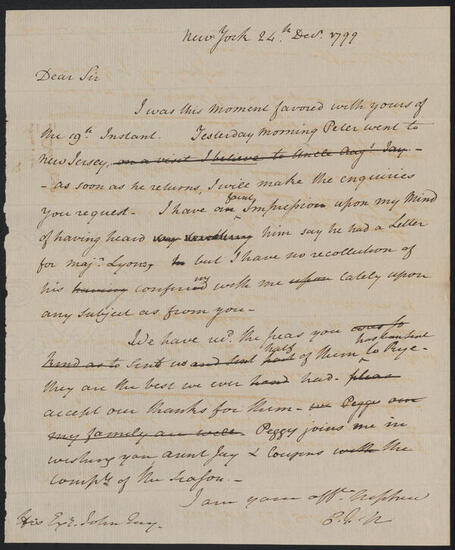 New York 24th Decr. 1799
Dear Sir
I was this moment favored with yours of
the 19th Instant. Yesterday Morning Peter went to
New Jersey, on a visit I believe to Uncle Augt. Jay
- as soon as he returns, I will make the enquiries
you request - I have a faint Impression upon my Mind
of having heard him say he had a Letter
for majr. Lyons, but I have no recollection of
his having conferred with me upon lately upon
any subject as from you -
We have recd. the peas you was so
kind as to send us and sent half of them to Rye -
they are the best we ever had had - please
accept our thanks for them - we Peggy and
my family are well. Peggy joins me in
wishing you aunt Jay & Cousins with the
Compts. of the Season -
I am your afft. Nephew
His Exy. John Jay.